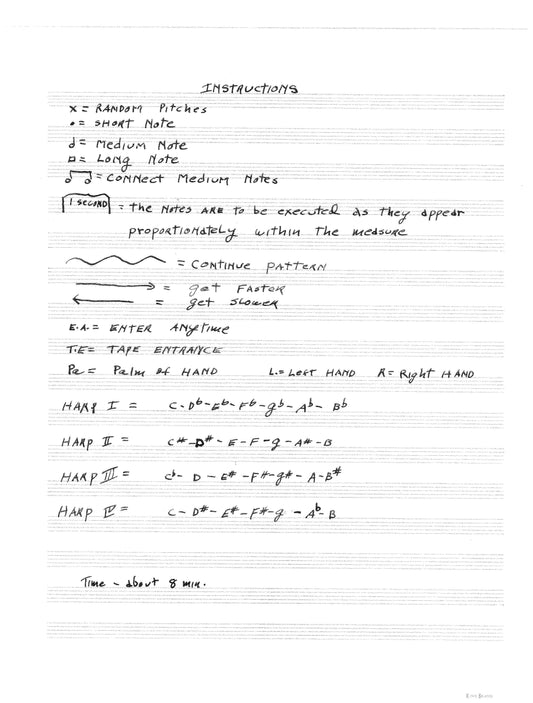 INSTRUCTIONS
x = RANDOM Pitches
• = SHORT Note
♩ = Medium Note
▯ = Long Note
♩ ♩ = CONNECT Medium Notes
1 SECOND = the Notes ARE to be executed as they appear
proportionately within the measure
= CONTINUE PATTERN
→ = get FASTER
← = get SLOWER
E.A. = ENTER ANYtime
T.E = TAPE ENTRANCE
Pa = Palm of HAND L. = Left HAND R = Right HAND
HARP I = C - D♭ - E♭ - F♭ - g♭ - A♭ - B♭
HARP II = C# - D# - E - F - g - A# - B
HARP III = C♭ - D - E# - F# - g# - A - B#
HARP IV = C - D# - E# - F# - g - A♭ - B
Time - about 8 min.